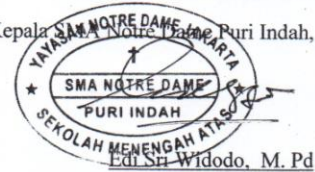 Kepala SMA Notre Dame Puri Indah,
YAYASAN NOTRE DAME JAKARTA
SMA NOTRE DAME
PURI INDAH
SEKOLAH MENENGAH ATAS
Edi Sri Widodo, M. Pd